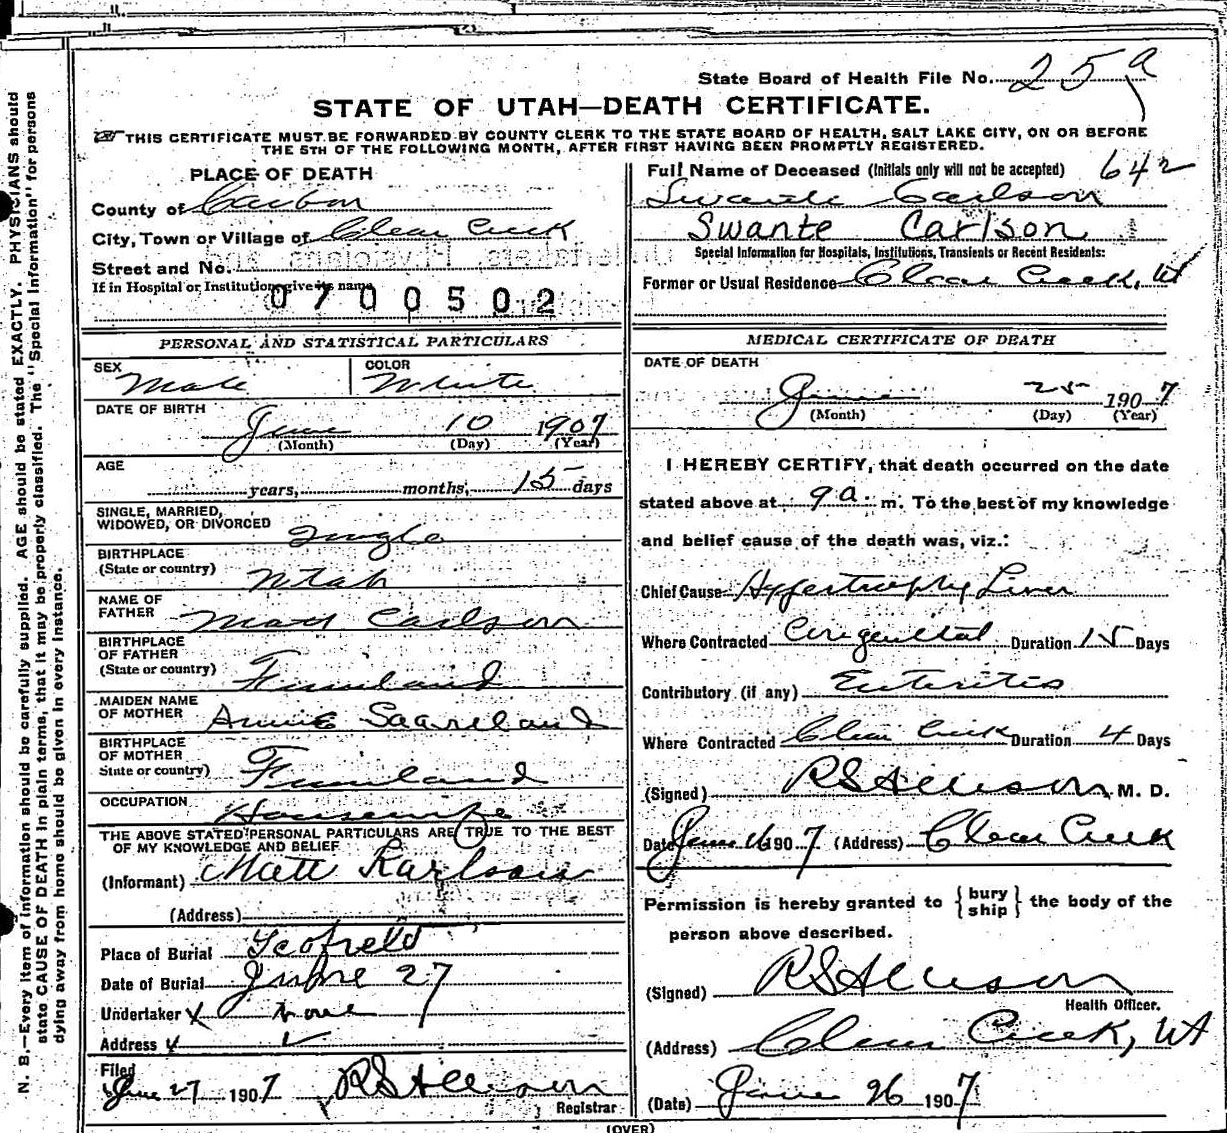 State Board of Health File No. 259
STATE OF UTAH—DEATH CERTIFICATE.
THIS CERTIFICATE MUST BE FORWARDED BY COUNTY CLERK TO THE STATE BOARD OF HEALTH, SALT LAKE CITY, ON OR BEFORE
THE 5TH OF THE FOLLOWING MONTH, AFTER FIRST HAVING BEEN PROMPTLY REGISTERED.
PLACE OF DEATH
County of Carbon
City, Town or Village of Clear Creek
Street and No.
If in Hospital or Institution, give its name
0700502
Full Name of Deceased (Initials only will not be accepted) 642
Swante Carlson
Swante Carlson
Special Information for Hospitals, Institutions, Transients or Recent Residents:
Former or Usual Residence Clear Creek, Ut
PERSONAL AND STATISTICAL PARTICULARS
SEX Male
COLOR White
DATE OF BIRTH
June 10 1907
(Month) (Day) (Year)
AGE
years, months, 15 days
SINGLE, MARRIED,
WIDOWED, OR DIVORCED Single
BIRTHPLACE
(State or country) Utah
NAME OF
FATHER Matt Carlson
BIRTHPLACE
OF FATHER
(State or country) Finnland
MAIDEN NAME
OF MOTHER Annie
BIRTHPLACE
OF MOTHER
State or country) Finnland
OCCUPATION Housewife
THE ABOVE STATED PERSONAL PARTICULARS ARE TRUE TO THE BEST
OF MY KNOWLEDGE AND BELIEF
(Informant) Matt Karlson
(Address)
Place of Burial Scofield
Date of Burial June 27
Undertaker x none
Address x
Filed
June 27 1907 RSAllison
Registrar
MEDICAL CERTIFICATE OF DEATH
DATE OF DEATH
June 25 1907
(Month) (Day) (Year)
I HEREBY CERTIFY, that death occurred on the date
stated above at 9 a. m. To the best of my knowledge
and belief cause of the death was, viz.:
Chief Cause Hypertrophy Liver
Where Contracted Congenital Duration 15 Days
Contributory (if any) Enteritis
Where Contracted Clear Creek Duration 4 Days
(Signed) RSAllison M. D.
Date June 1907 (Address) Clear Creek
Permission is hereby granted to { bury ship } the body of the
person above described.
(Signed) RSAllison
Health Officer.
(Address) Clear Creek, Ut
(Date) June 26 1907
(OVER)
N. B.—Every item of information should be carefully supplied. AGE should be stated EXACTLY. PHYSICIANS should
state CAUSE OF DEATH in plain terms, that it may be properly classified. The "Special Information" for persons
dying away from home should be given in every instance.